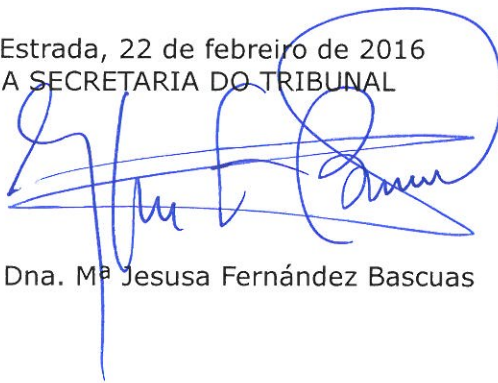 Estrada, 22 de febreiro de 2016
A SECRETARIA DO TRIBUNAL
Dna. Mª Jesusa Fernández Bascuas